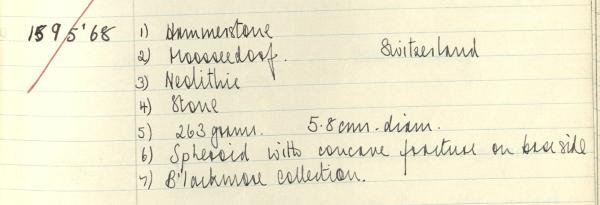 159 5'68 1) Hammerstone
2) Moosseedorf. Switzerland
3) Neolithic
4) Stone
5) 263 grams. 5.8 cms. diam.
6) Spheroid with concave fracture on one side
7) B'lackmore collection.